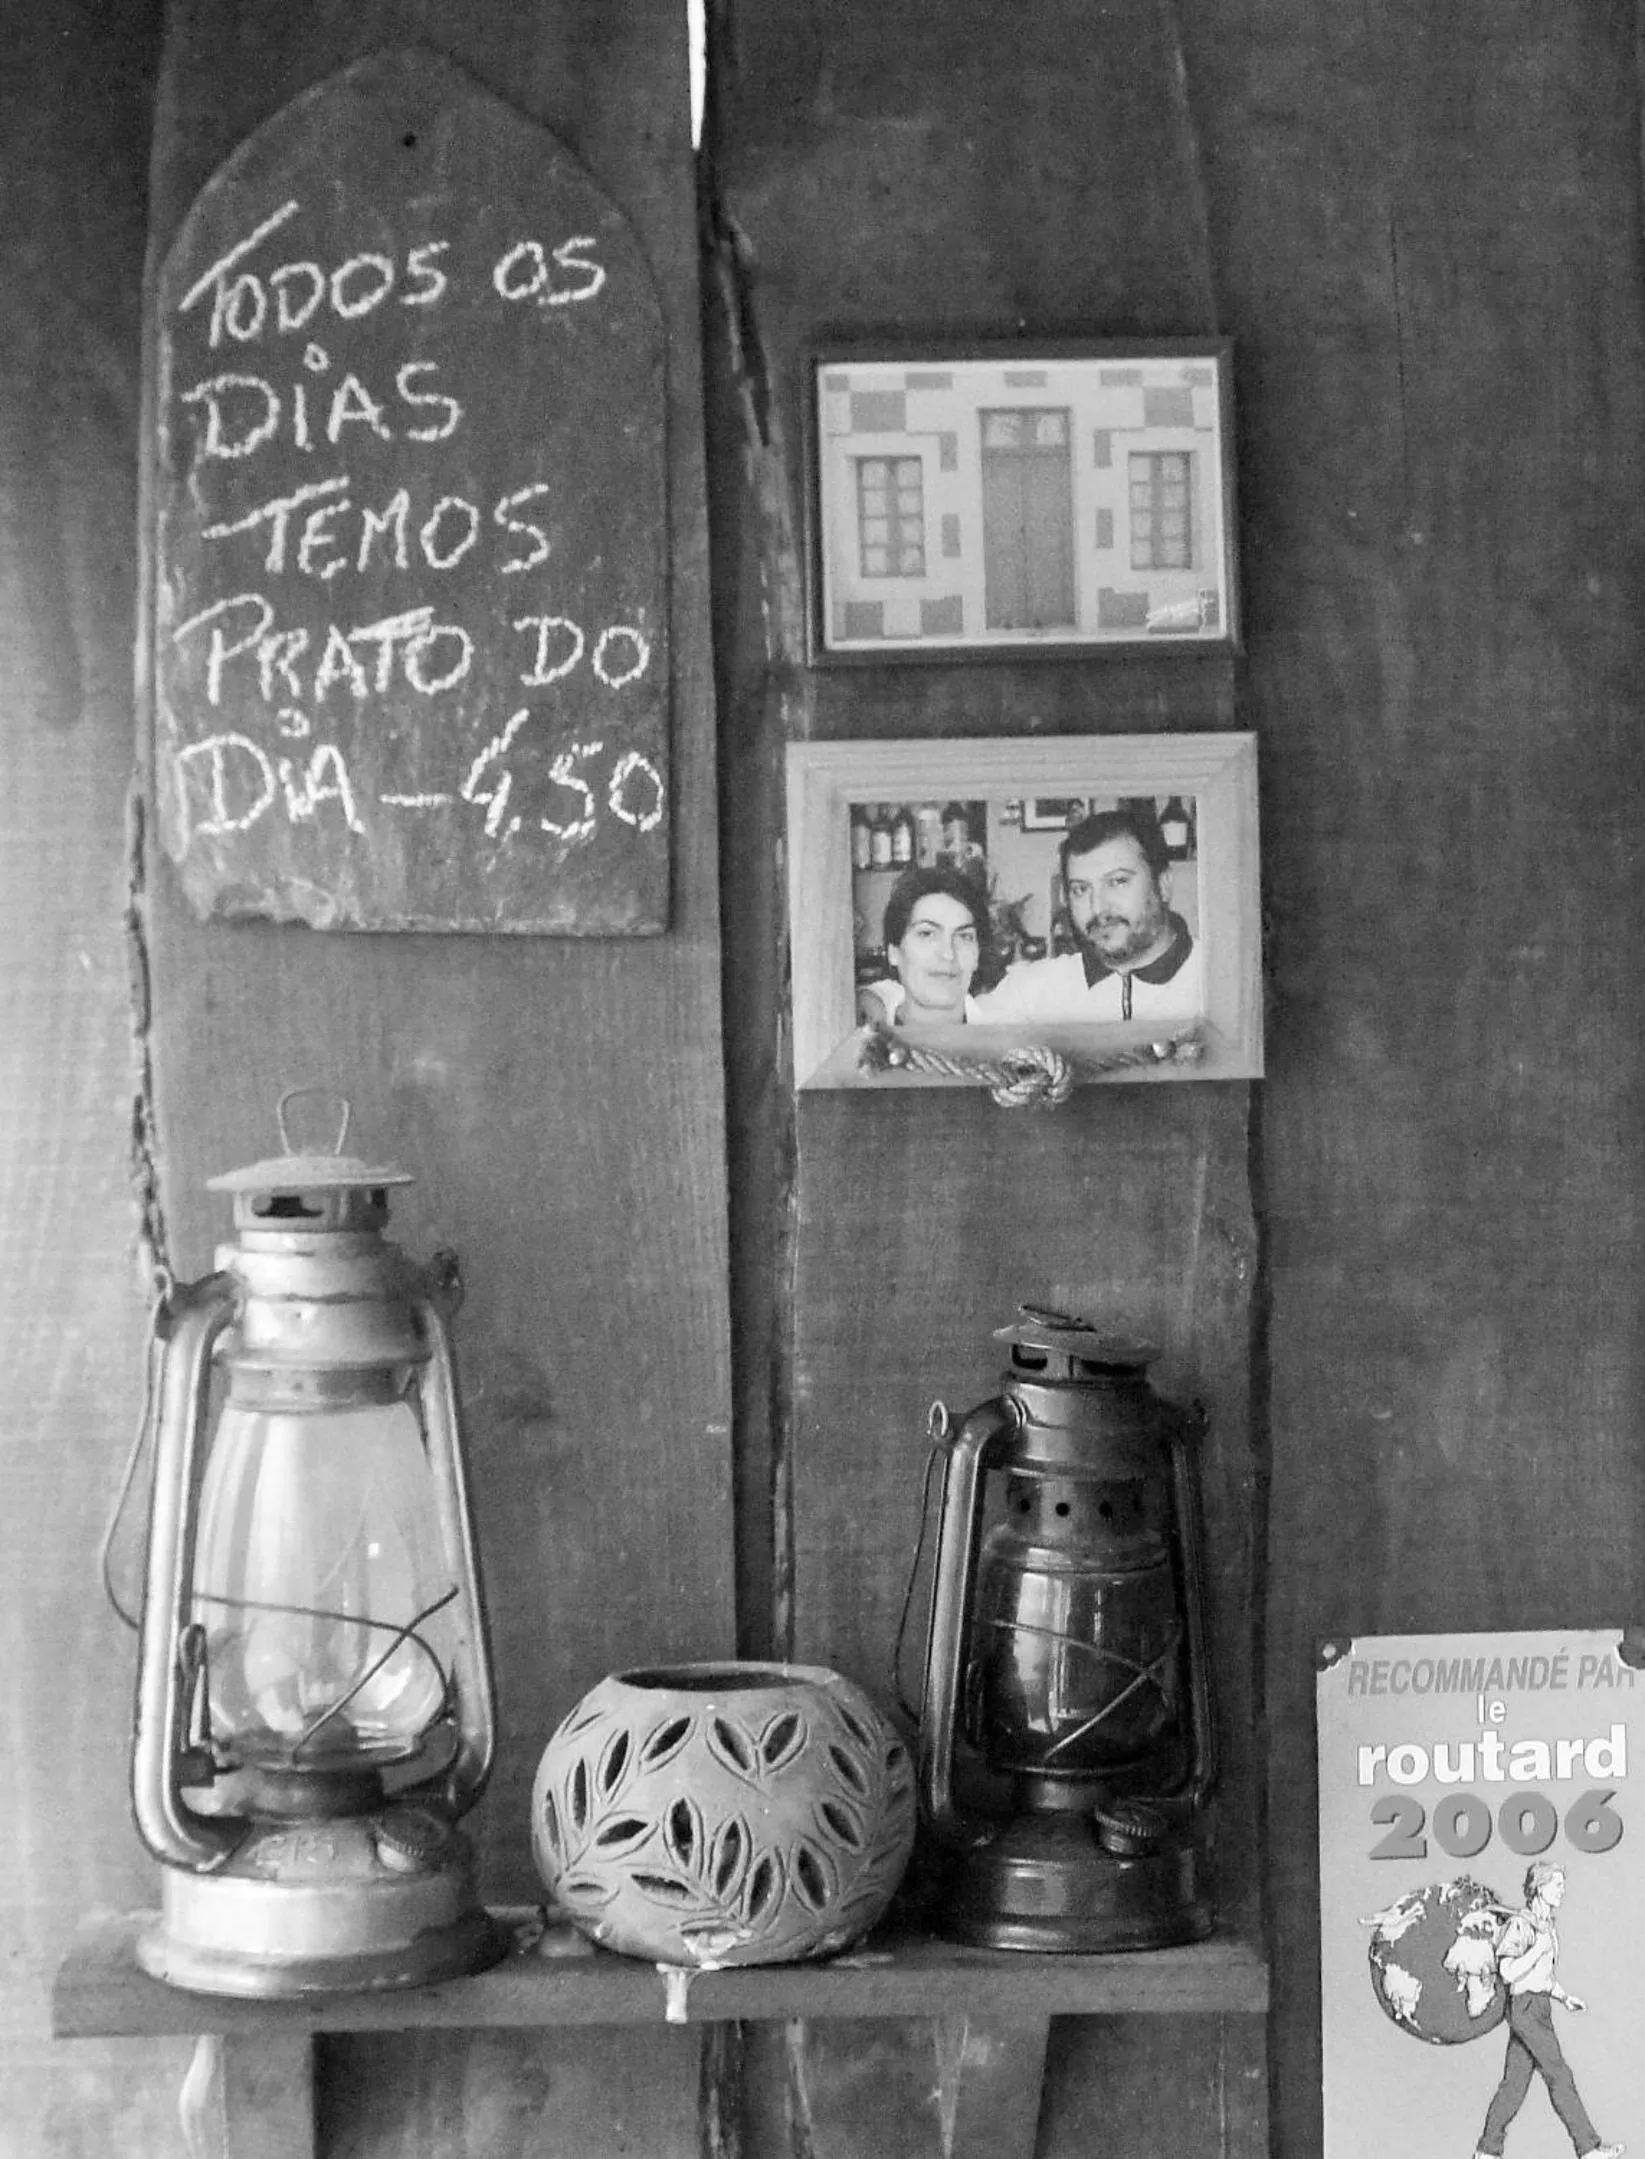 TODOS OS
DIAS
TEMOS
PRATO DO
DIA - 4,50
RECOMMANDÉ PAR
le
routard
2006